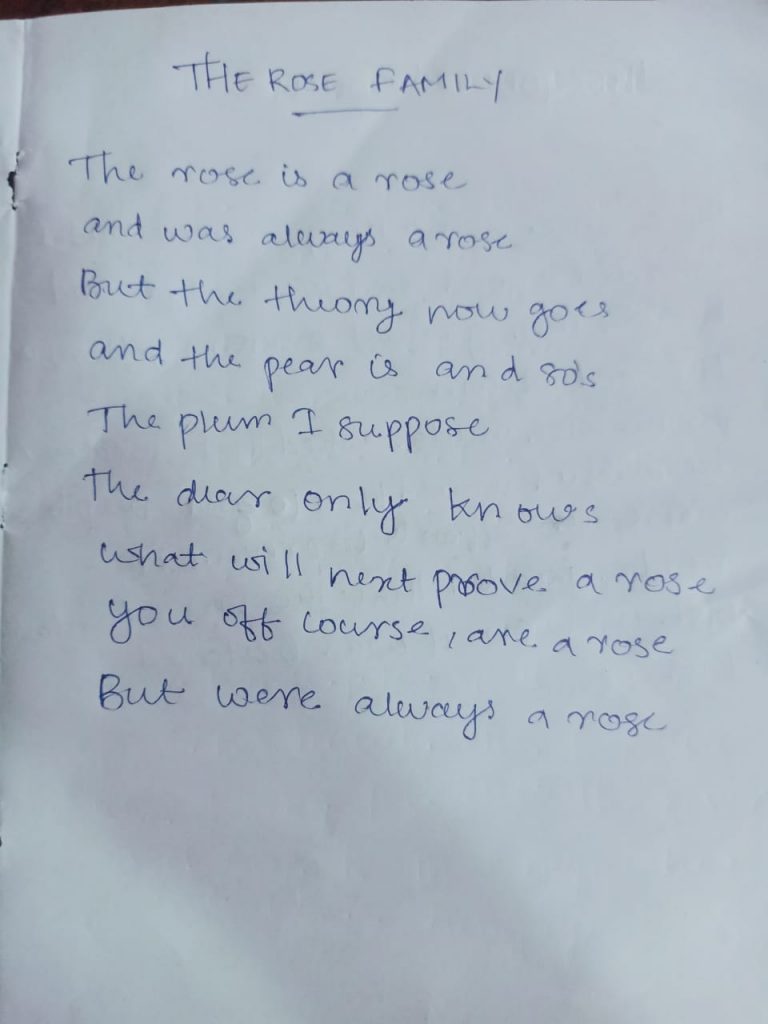 THE ROSE FAMILY
The rose is a rose
and was always a rose
But the theory now goes
and the pear is and so's
The plum I suppose
The dear only knows
what will next proove a rose
you off course, are a rose
But were always a rose